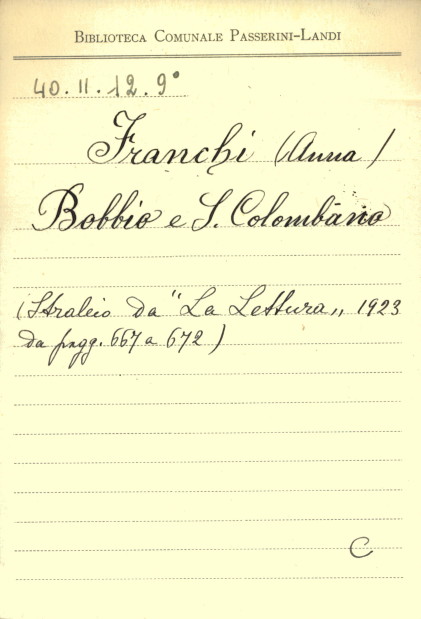 BIBLIOTECA COMUNALE PASSERINI-LANDI
40.II.12.9°
Franchi (Anna)
Bobbio e S. Colombano
(Stralcio da "La Lettura„ 1923
da pagg. 667 a 672)
C